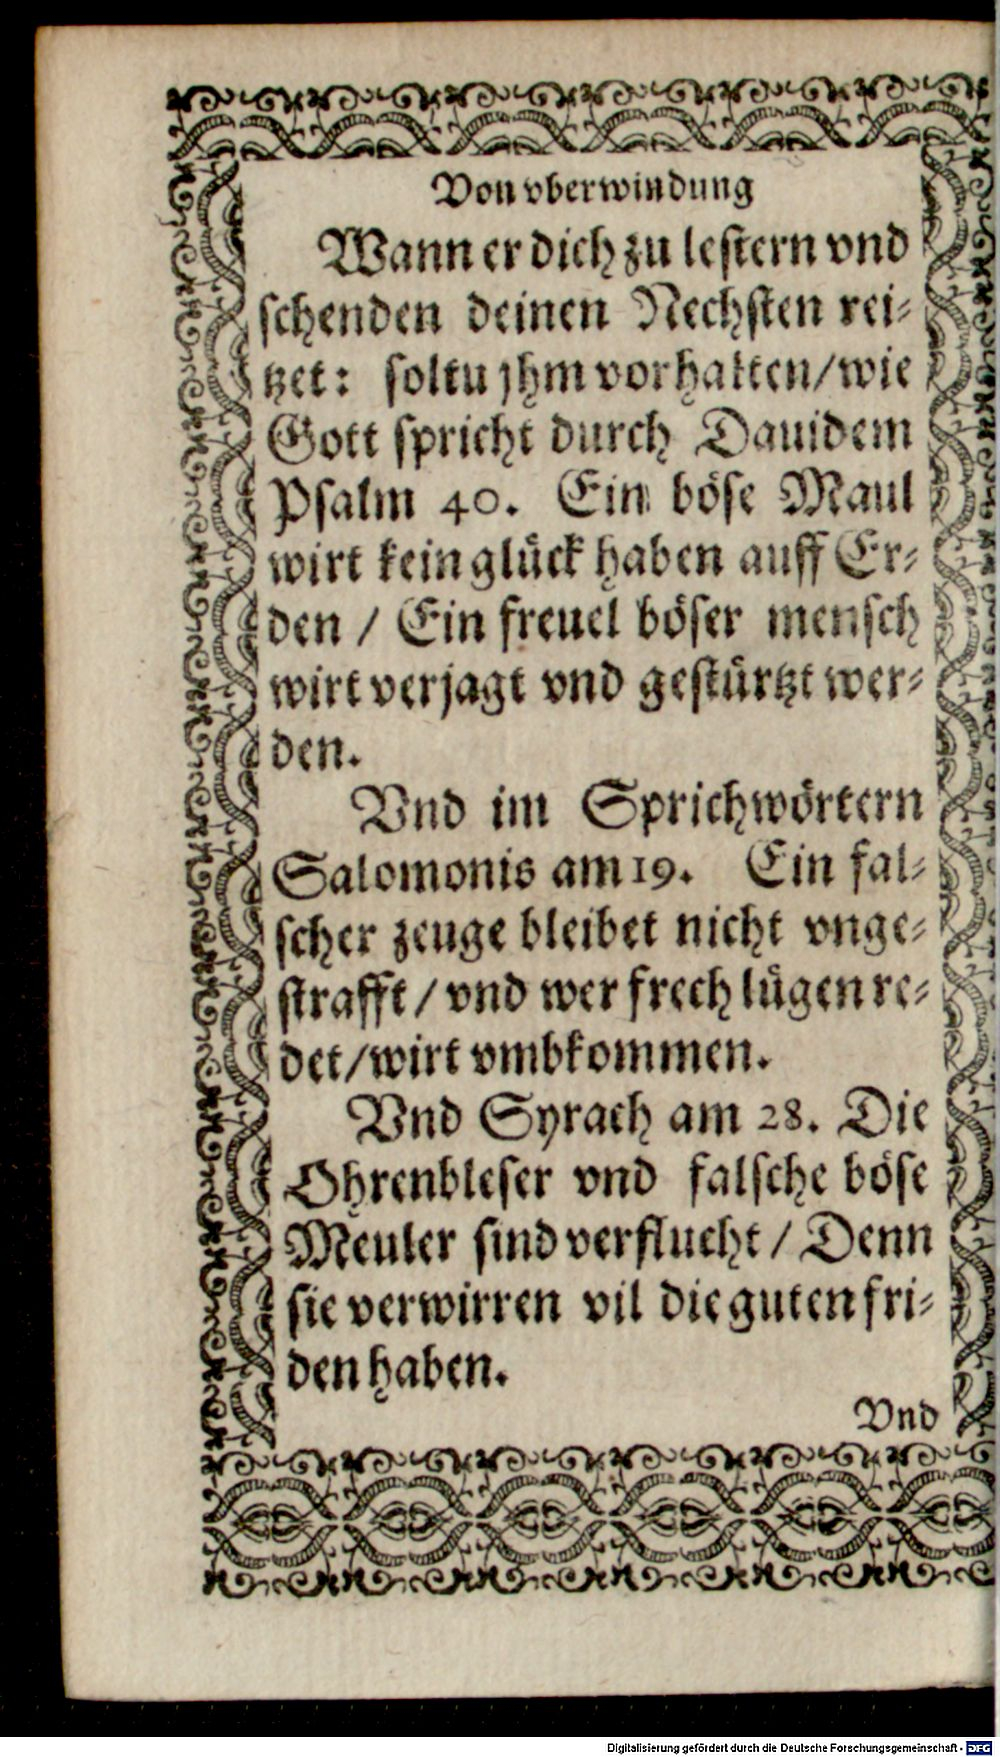 Von vberwindung
Wann er dich zu lestern vnd
schenden deinen Nechsten rei-
tzet: soltu jhm vorhalten/wie
Gott spricht durch Dauidem
Psalm 40. Ein böse Maul
wirt kein glück haben auff Er-
den / Ein freuel böser mensch
wirt verjagt vnd gestürtzt wer-
den.
Vnd im Sprichwörtern
Salomonis am 19. Ein fal-
scher zeuge bleibet nicht vnge-
strafft / vnd wer frech lügen re-
det/wirt vmbkommen.
Vnd Syrach am 28. Die
Ohrenbleser vnd falsche böse
Meuler sind verflucht / Denn
sie verwirren vil die guten fri-
den haben.
Vnd
Digitalisierung gefördert durch die Deutsche Forschungsgemeinschaft - DFG